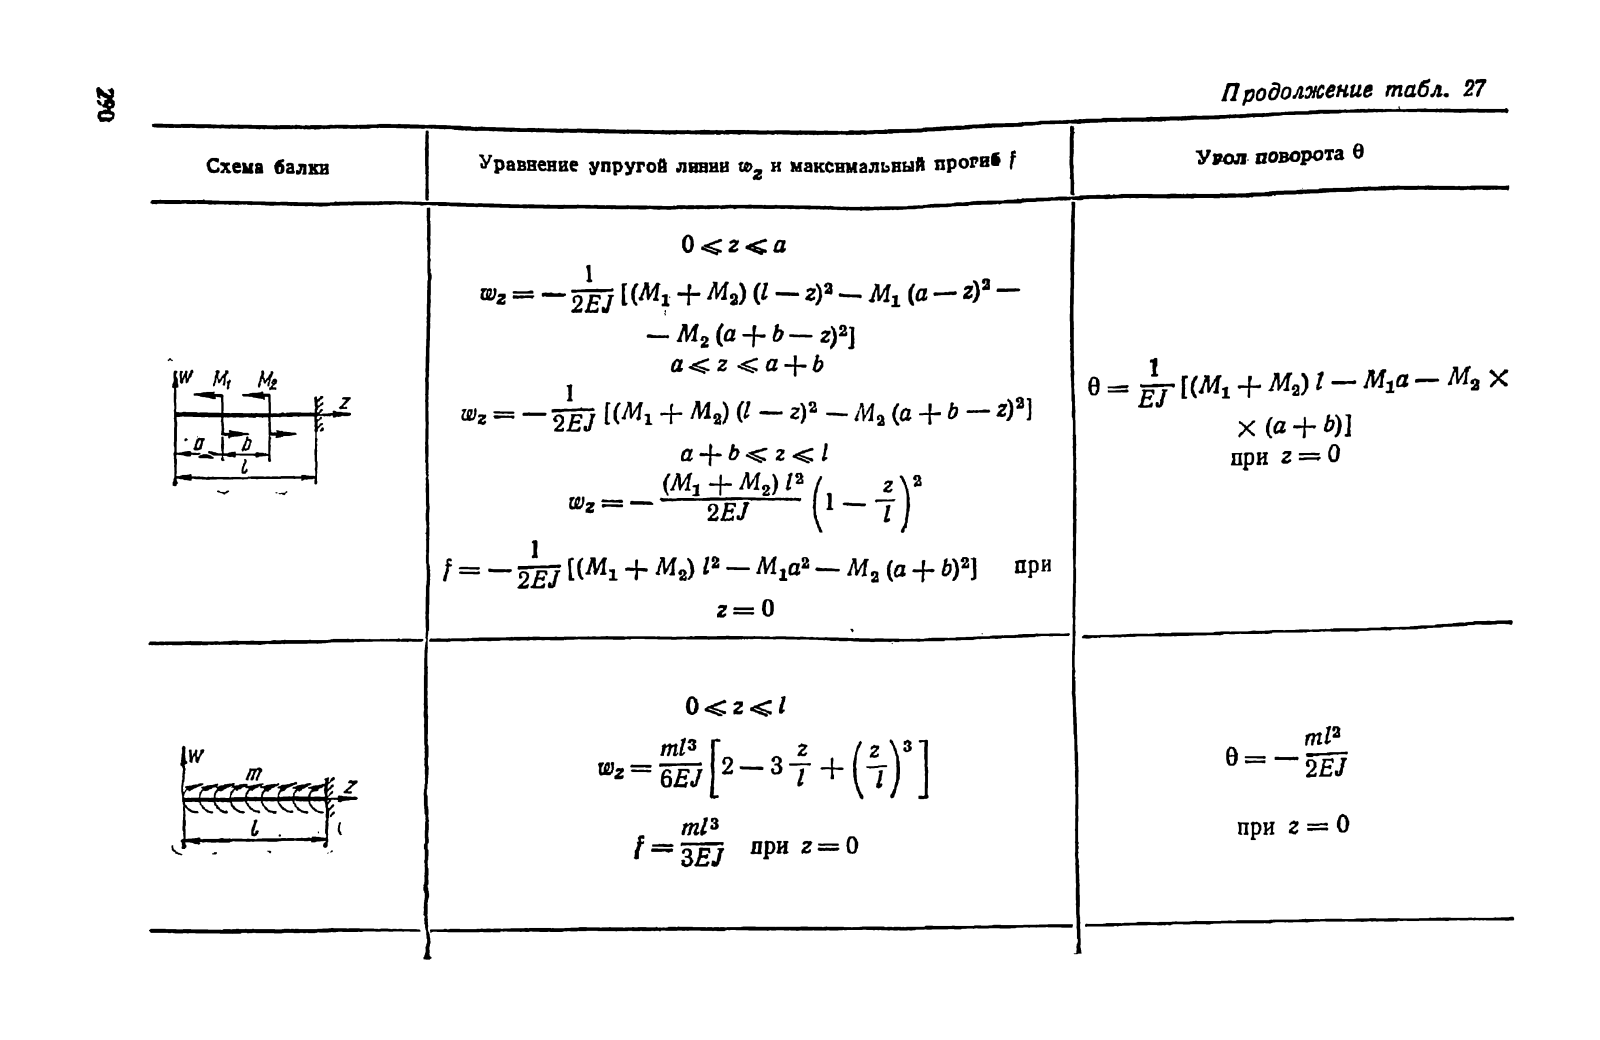 290
Продолжение табл. 27
Схема балки
Уравнение упругой линии w_z и максимальный прогиб f
Угол поворота θ
W M₁ M₂ Z
a b
l
0 ⩽ z ⩽ a
w_z = — 1/2EJ [(M₁ + M₂) (l — z)² — M₁ (a — z)² —
— M₂ (a + b — z)²]
a ⩽ z ⩽ a + b
w_z = — 1/2EJ [(M₁ + M₂) (l — z)² — M₂ (a + b — z)²]
a + b ⩽ z ⩽ l
w_z = — (M₁ + M₂) l²/2EJ (1 — z/l)²
f = — 1/2EJ [(M₁ + M₂) l² — M₁a² — M₂ (a + b)²] при
z = 0
θ = 1/EJ [(M₁ + M₂) l — M₁a — M₂ ×
× (a + b)]
при z = 0
W
m Z
l
0 ⩽ z ⩽ l
w_z = ml³/6EJ [2 — 3 z/l + (z/l)³]
f = ml³/3EJ при z = 0
θ = — ml²/2EJ
при z = 0